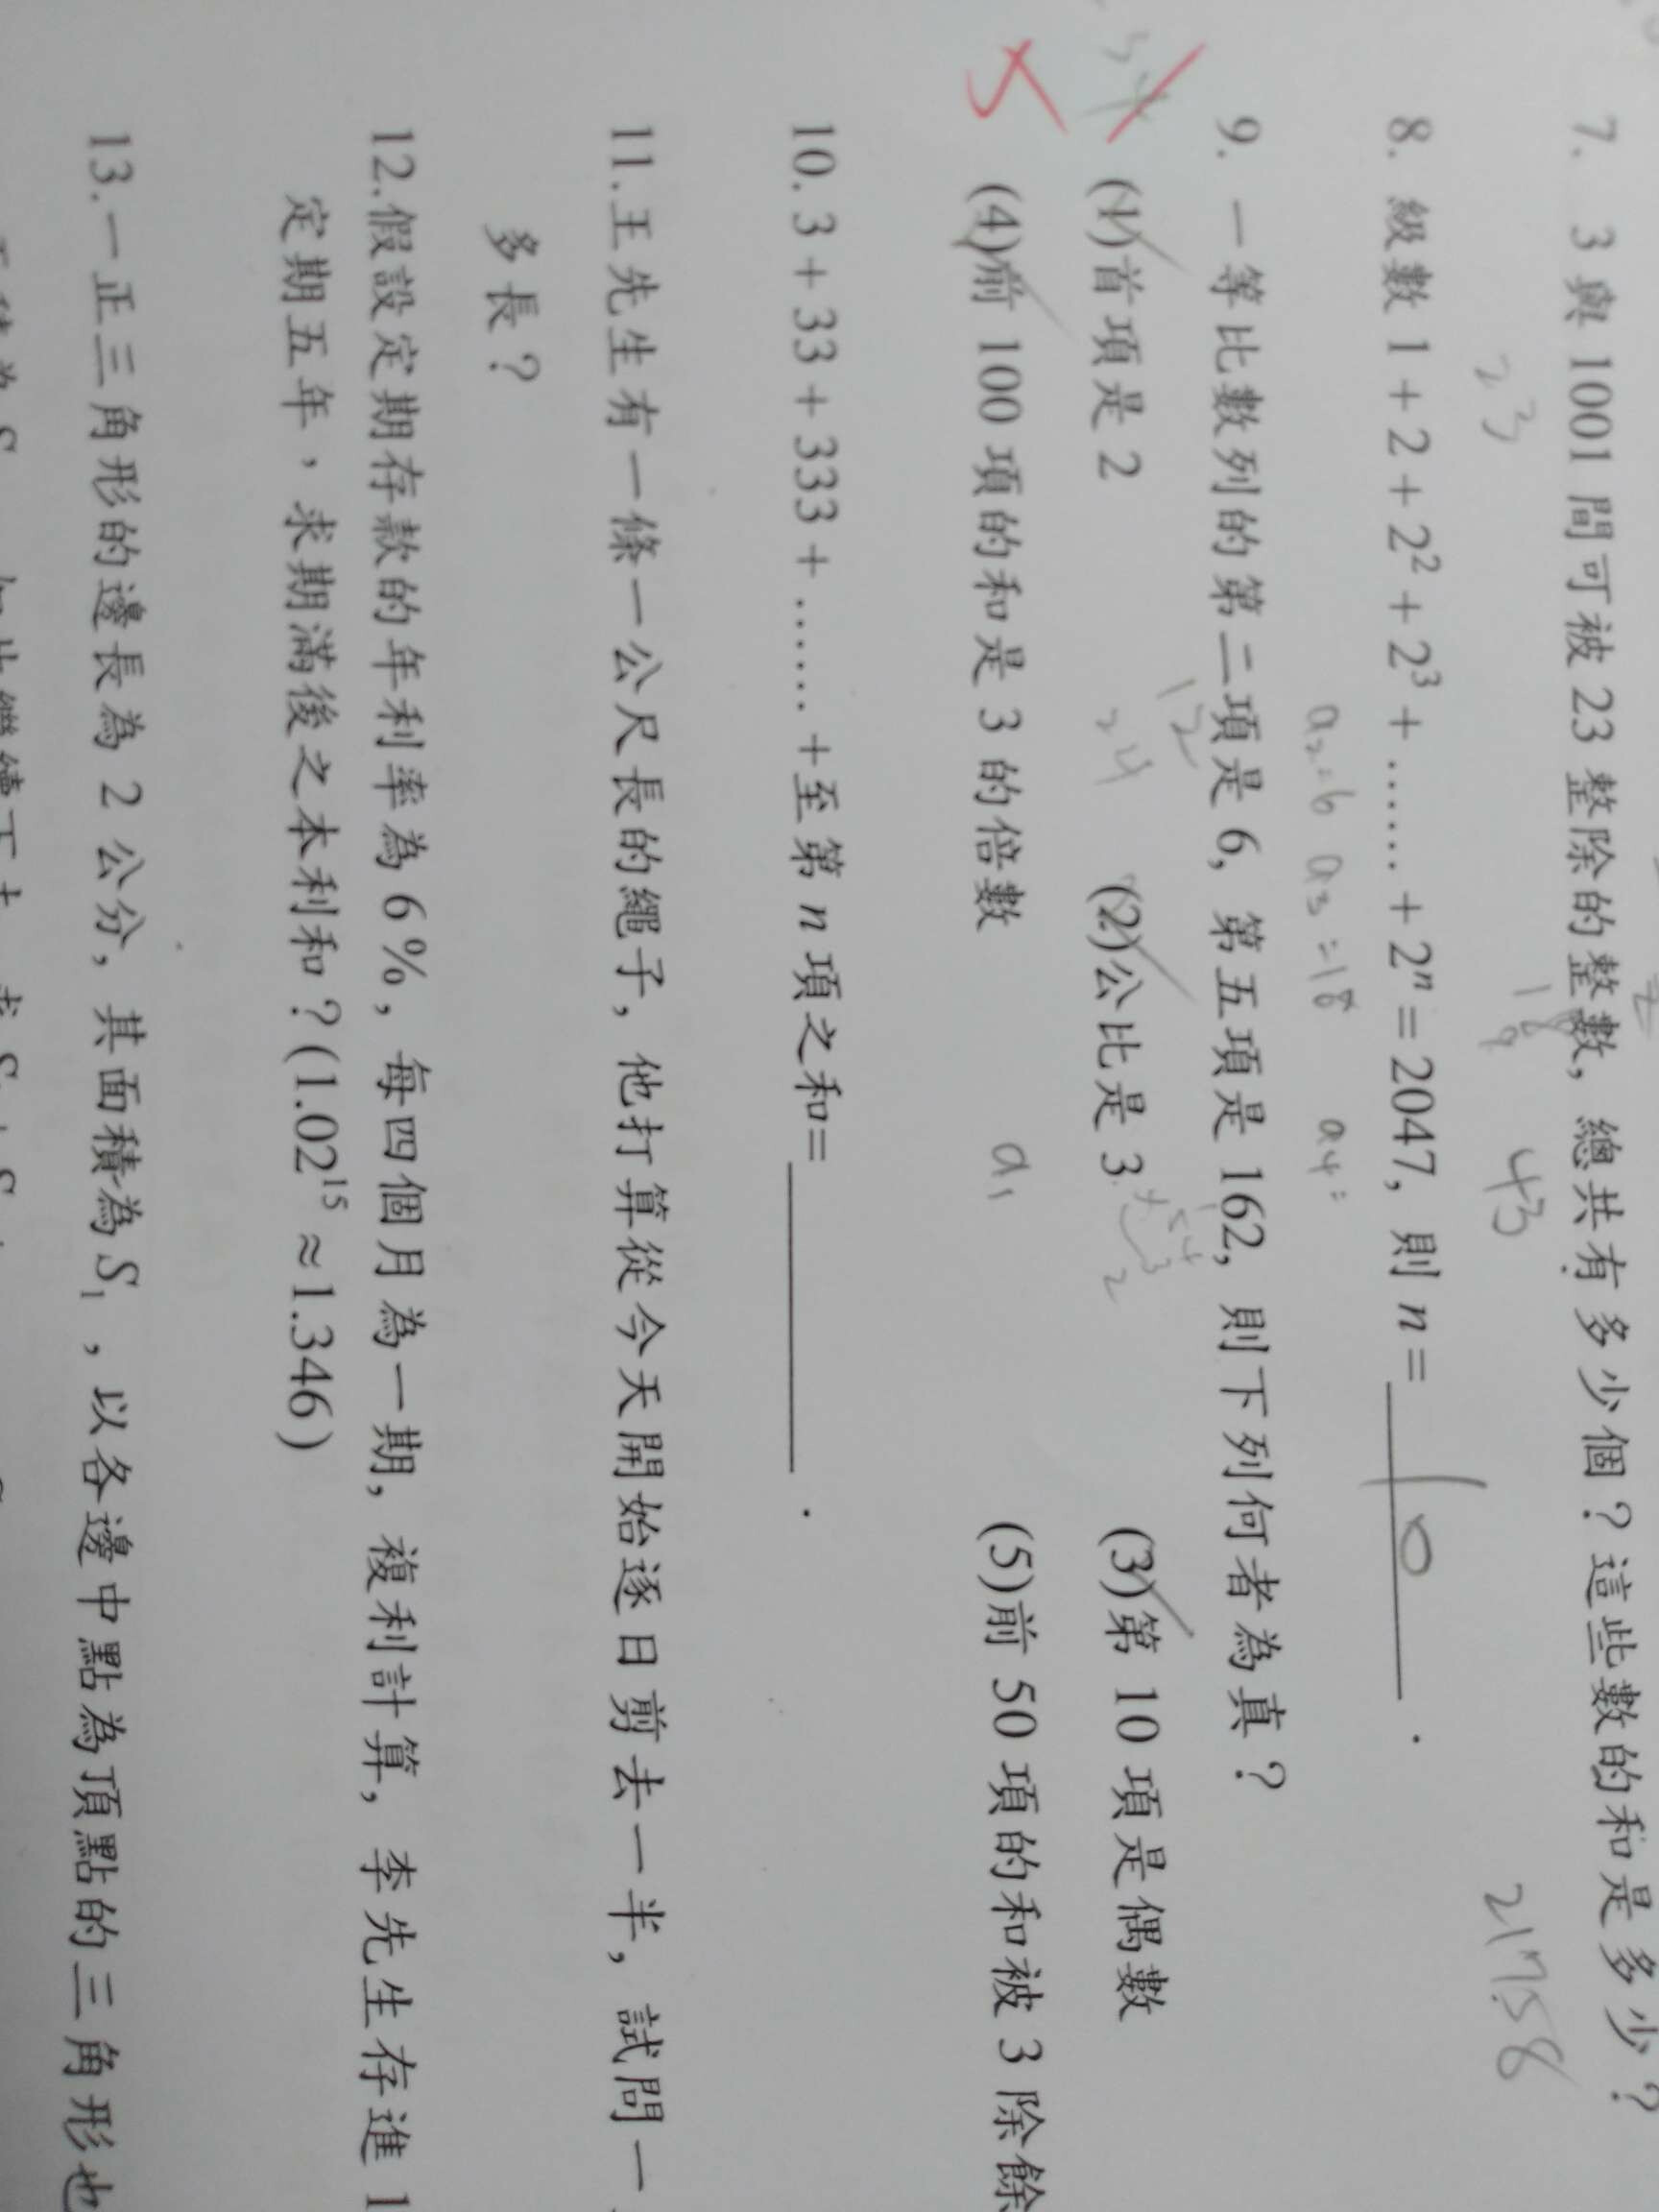 7. 3 與 1001 間可被 23 整除的整數, 總共有多少個？這些數的和是多少？
23 43 21758
8. 級數 1 + 2 + 2² + 2³ + …… + 2ⁿ = 2047, 則 n = 10 .
a₂=6 a₃=18 a₄=
9. 一等比數列的第二項是 6, 第五項是 162, 則下列何者為真？
(1)首項是 2 (2)公比是 3 (3)第 10 項是偶數
(4)前 100 項的和是 3 的倍數 (5)前 50 項的和被 3 除餘
a₁
10. 3 + 33 + 333 + …… + 至第 n 項之和= .
11.王先生有一條一公尺長的繩子, 他打算從今天開始逐日剪去一半, 試問一
多長？
12.假設定期存款的年利率為 6 %, 每四個月為一期, 複利計算, 李先生存進 1
定期五年，求期滿後之本利和？(1.02¹⁵ ≈ 1.346)
13.一正三角形的邊長為 2 公分, 其面積為 S₁ ，以各邊中點為頂點的三角形也